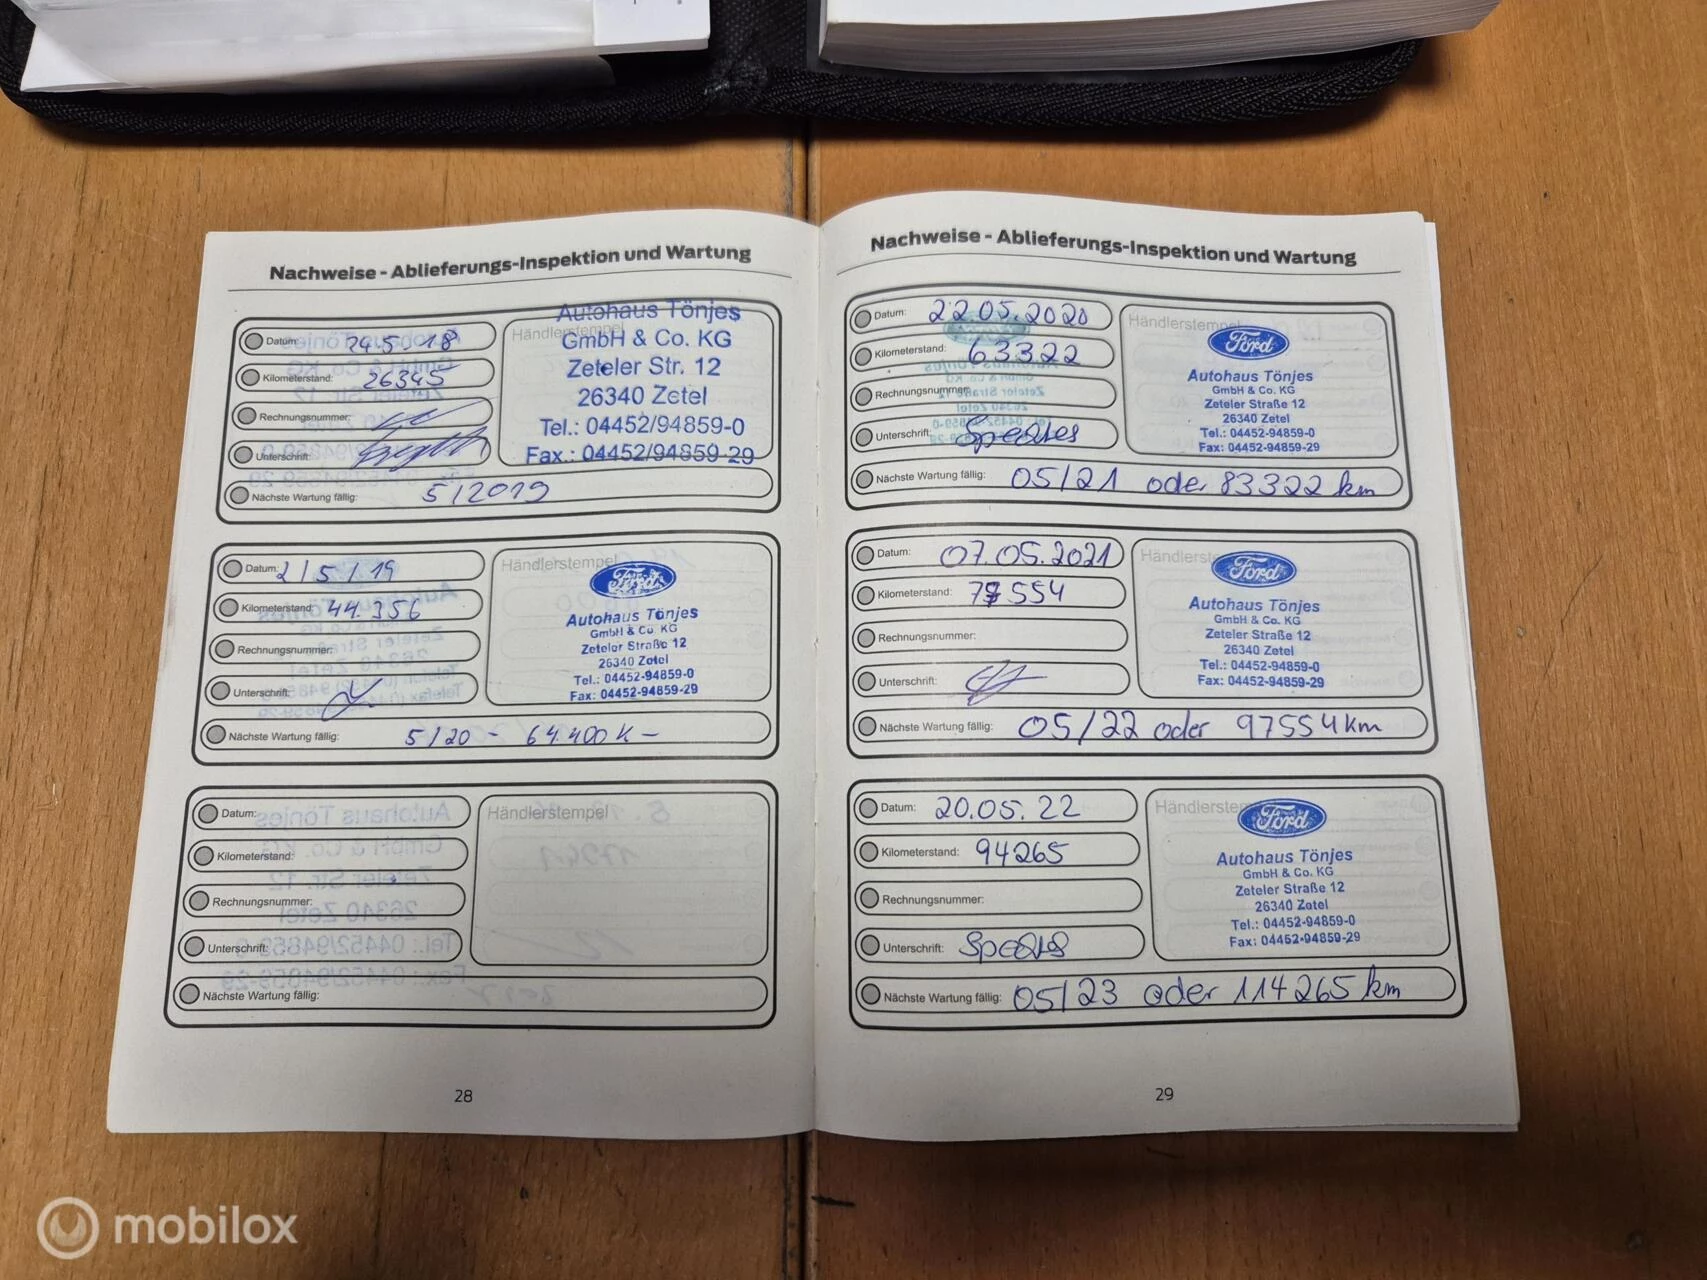 Nachweise - Ablieferungs-Inspektion und Wartung
Datum: 24.5.18
Kilometerstand: 26345
Rechnungsnummer:
Unterschrift:
Händlerstempel
Autohaus Tönjes
GmbH & Co. KG
Zeteler Str. 12
26340 Zetel
Tel.: 04452/94859-0
Fax.: 04452/94859-29
Nächste Wartung fällig: 5/2019
Datum: 2/5/19
Kilometerstand: 44.356
Rechnungsnummer:
Unterschrift:
Händlerstempel
Ford
Autohaus Tönjes
GmbH & Co. KG
Zeteler Straße 12
26340 Zetel
Tel.: 04452-94859-0
Fax: 04452-94859-29
Nächste Wartung fällig: 5/20 - 64.400 K -
Datum:
Kilometerstand:
Rechnungsnummer:
Unterschrift:
Händlerstempel
Nächste Wartung fällig:
28
Nachweise - Ablieferungs-Inspektion und Wartung
Datum: 22.05.2020
Kilometerstand: 63322
Rechnungsnummer:
Unterschrift:
Händlerstempel
Ford
Autohaus Tönjes
GmbH & Co. KG
Zeteler Straße 12
26340 Zetel
Tel.: 04452-94859-0
Fax: 04452-94859-29
Nächste Wartung fällig: 05/21 oder 83322 km
Datum: 07.05.2021
Kilometerstand: 77554
Rechnungsnummer:
Unterschrift:
Händlerstempel
Ford
Autohaus Tönjes
GmbH & Co. KG
Zeteler Straße 12
26340 Zetel
Tel.: 04452-94859-0
Fax: 04452-94859-29
Nächste Wartung fällig: 05/22 oder 97554 km
Datum: 20.05.22
Kilometerstand: 94265
Rechnungsnummer:
Unterschrift:
Händlerstempel
Ford
Autohaus Tönjes
GmbH & Co. KG
Zeteler Straße 12
26340 Zetel
Tel.: 04452-94859-0
Fax: 04452-94859-29
Nächste Wartung fällig: 05/23 oder 114265 km
29
mobilox